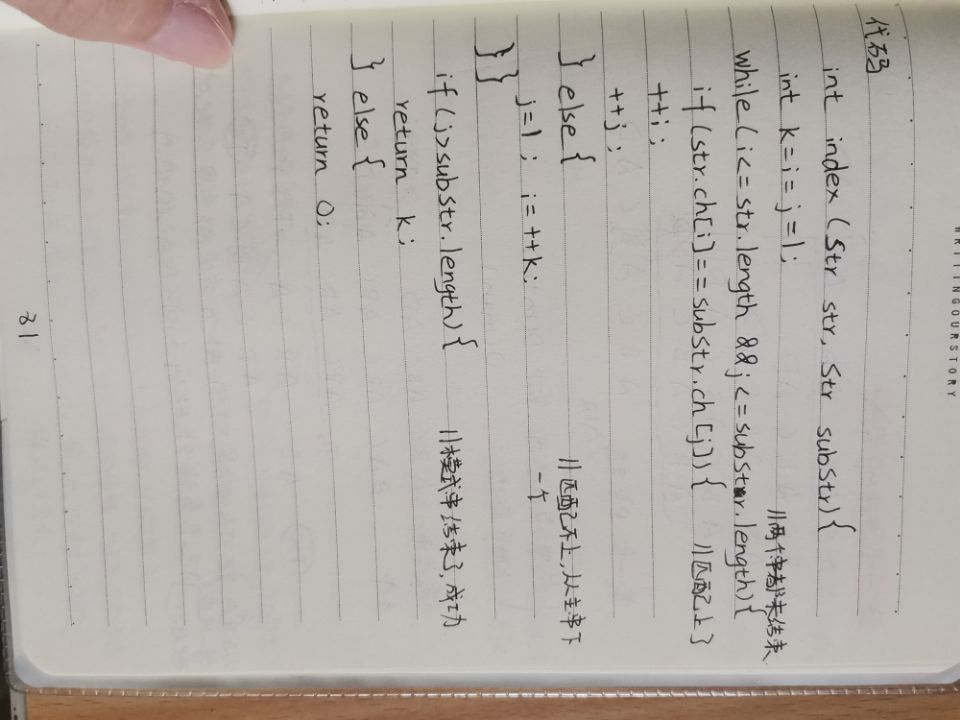 WRITINGOURSTORY
代码
int index (Str str, Str substr){
int k=i=j=1;
//两个串都未结束
while(i<=str.length &&j<=substr.length){
if(str.ch[i]==substr.ch[j]){ //匹配上了
++i;
++j;
} else{ //匹配不上,从主串下
一个
j=1; i=++k;
}}
if(j>substr.length){ //模式串结束了,成功
return k;
} else{
return 0;
31